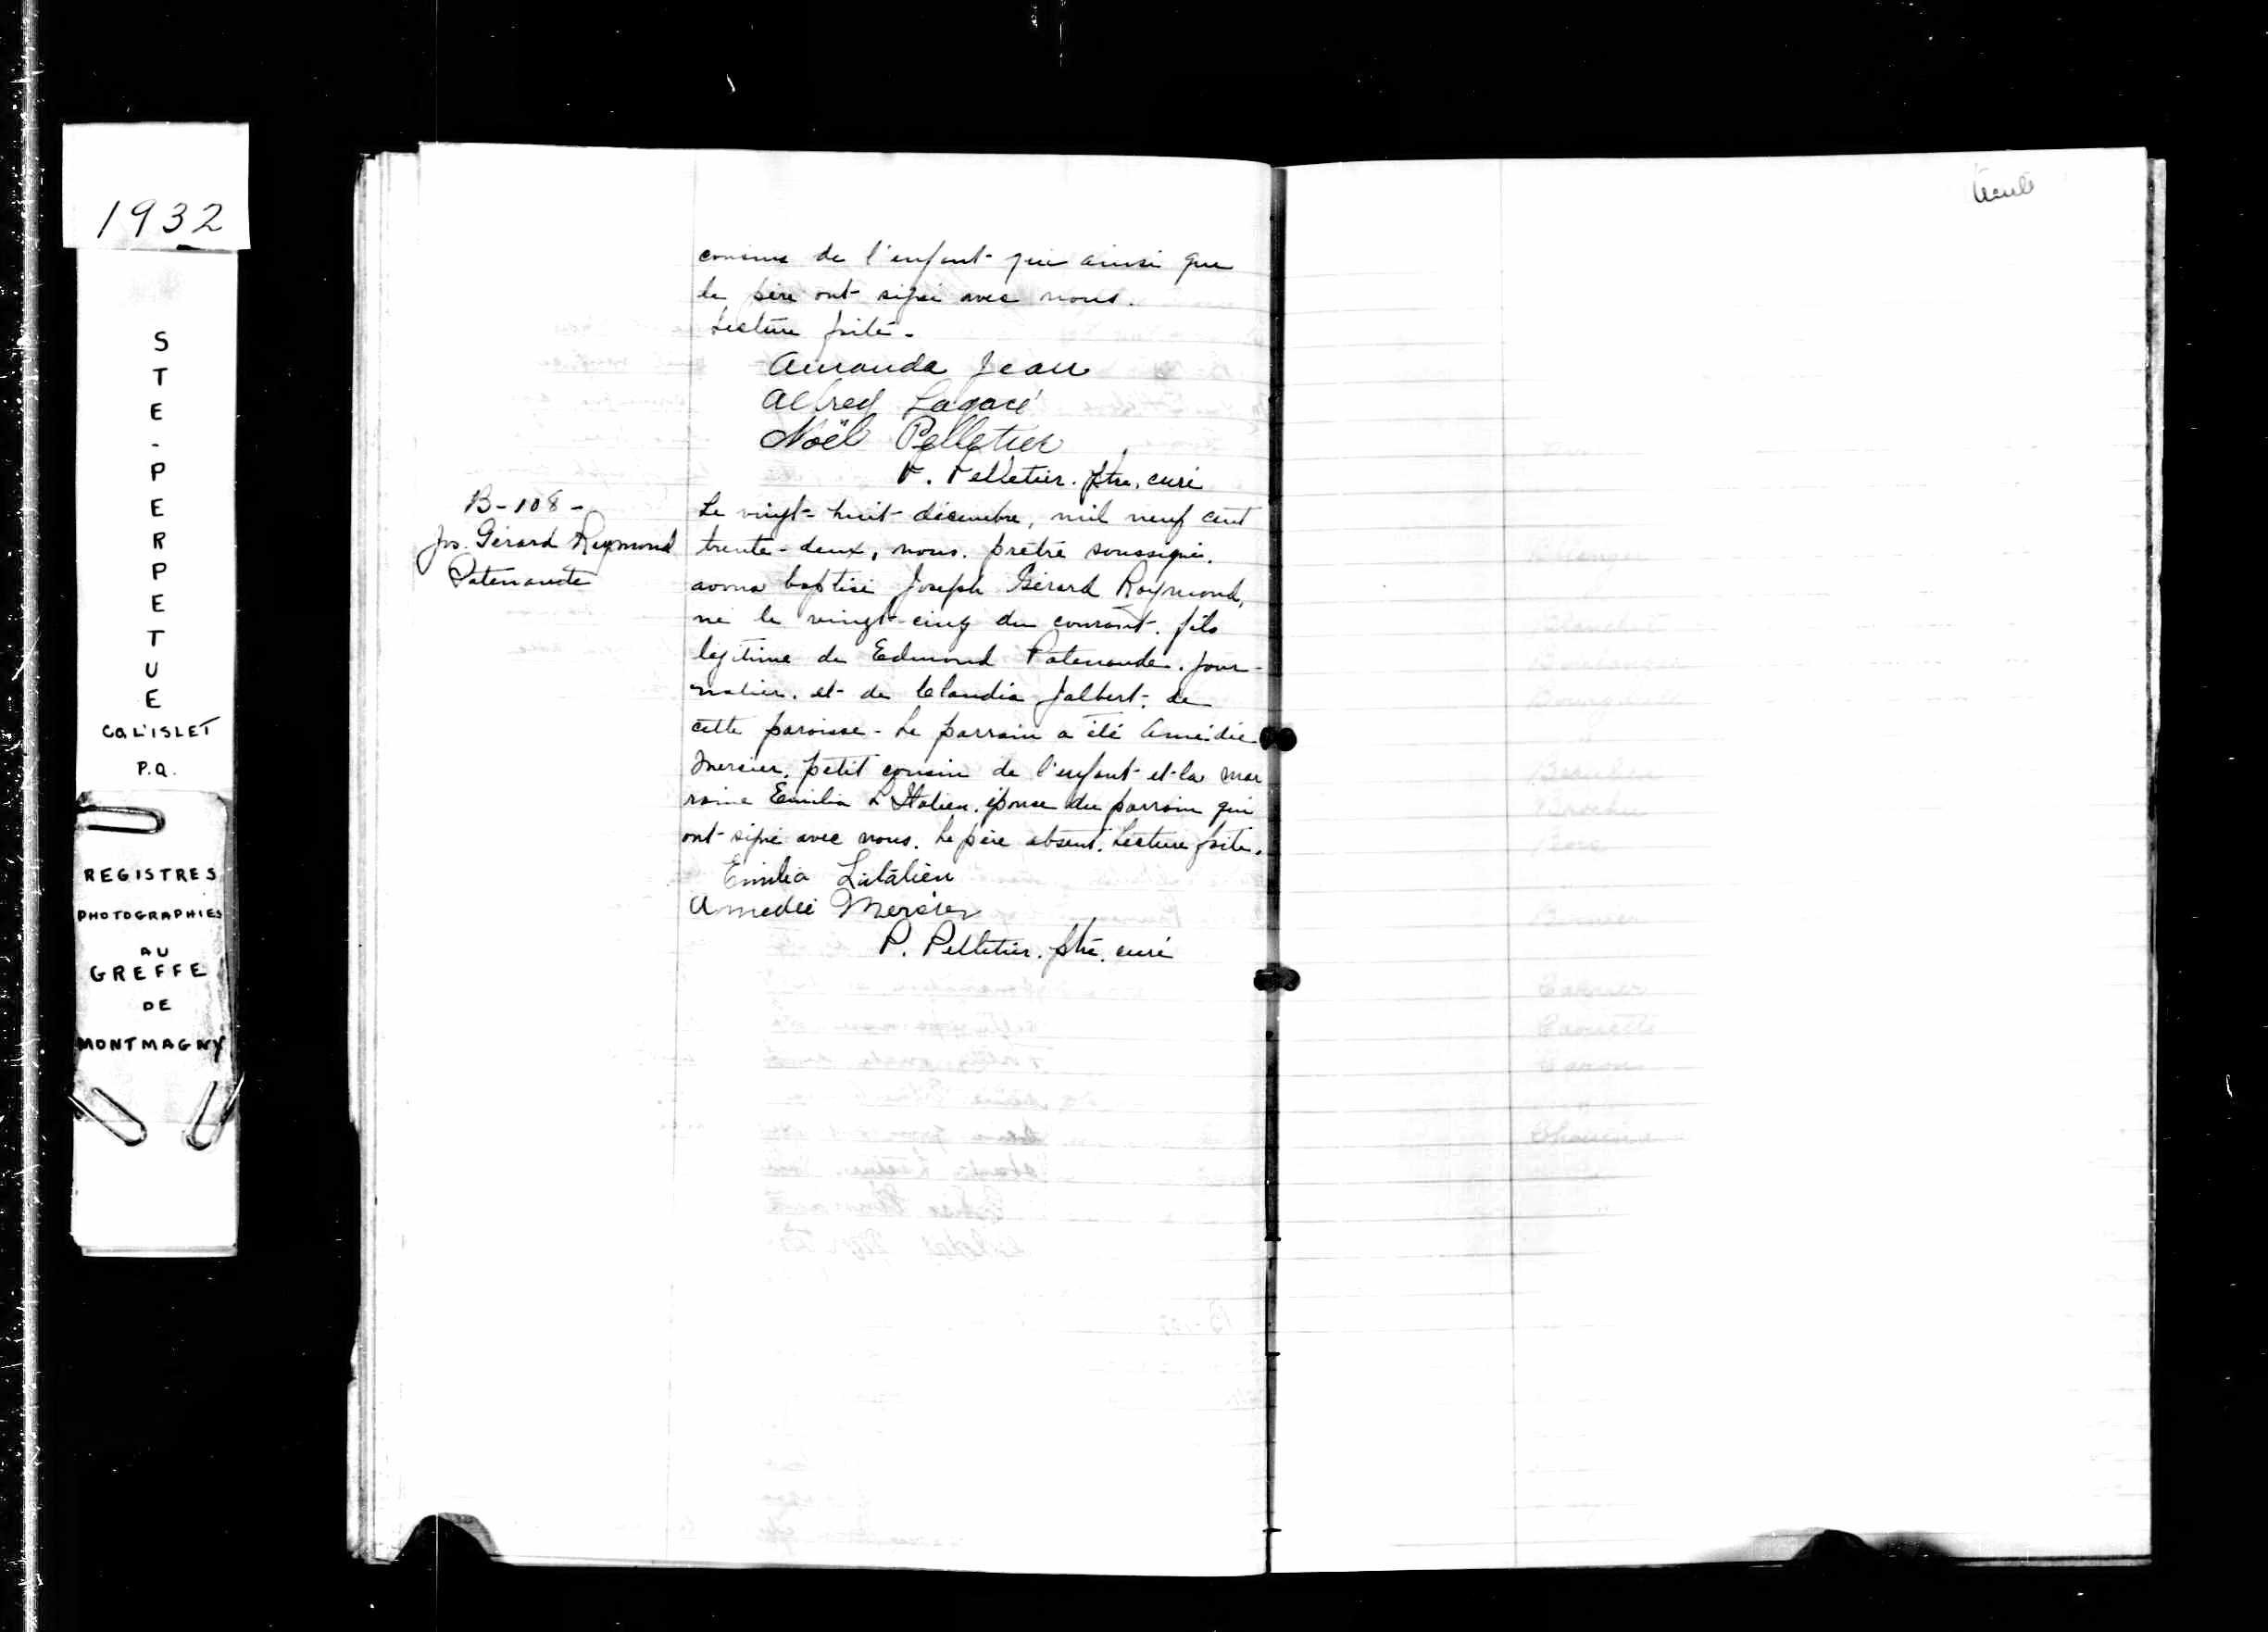 1932
STE-PERPETUE
CO. L'ISLET
P.Q.
REGISTRES
PHOTOGRAPHIES
AU
GREFFE
DE
MONTMAGNY
cousins de l'enfant qui ainsi que
le père ont signé avec nous.
Lecture faite.
Amanda Jean
Alfred Lagacé
Noël Pelletier
P. Pelletier. ptre, curé
B-108-
Jos. Gérard Raymond
Patenaude
Le vingt-huit décembre, mil neuf cent
trente-deux, nous. prêtre soussigné.
avons baptisé Joseph Gérard Raymond,
né le vingt-cinq du courant. fils
légitime de Edmond Patenaude. jour-
nalier. et de Claudia Jalbert. de
cette paroisse - Le parrain a été Amédée
Mercier. petit cousin de l'enfant et la mar
raine Emilia L'Italien. épouse du parrain qui
ont signé avec nous. Le père absent. Lecture faite.
Emilia Litalien
Amedée Mercier
P. Pelletier. ptre. curé
Bélanger
Blanchet
Boulanger
Beaulieu
Brochu
Bernier
Caouette
Caron
Chouinard